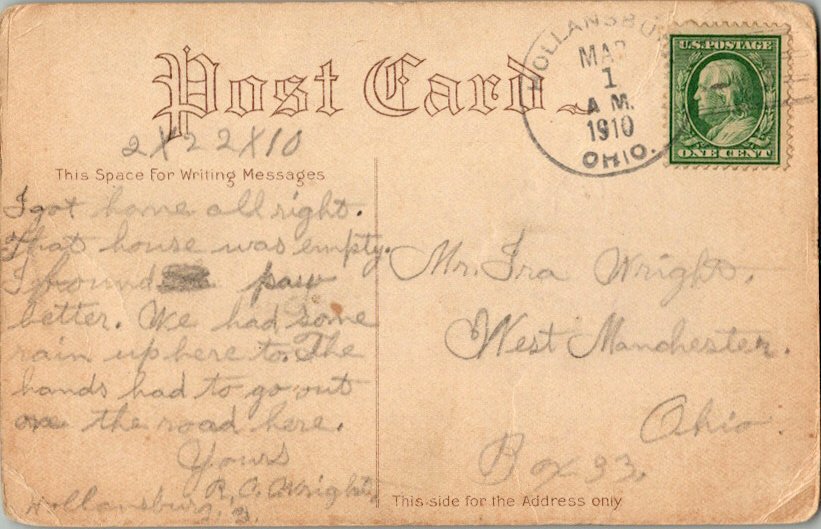 HOLLANSBU
MAR
1
A M.
1910
OHIO.
U.S. POSTAGE
ONE CENT
Post Card
2X22X10
This Space For Writing Messages
I got home all right.
That house was empty.
I found paw
better. We had some
rain up here to. The
hands had to go out
on the road here.
Yours
R. O. Wright
Hollansburg
Mr. Ira Wright.
West Manchester.
Ohio.
Box 33.
This side for the Address only